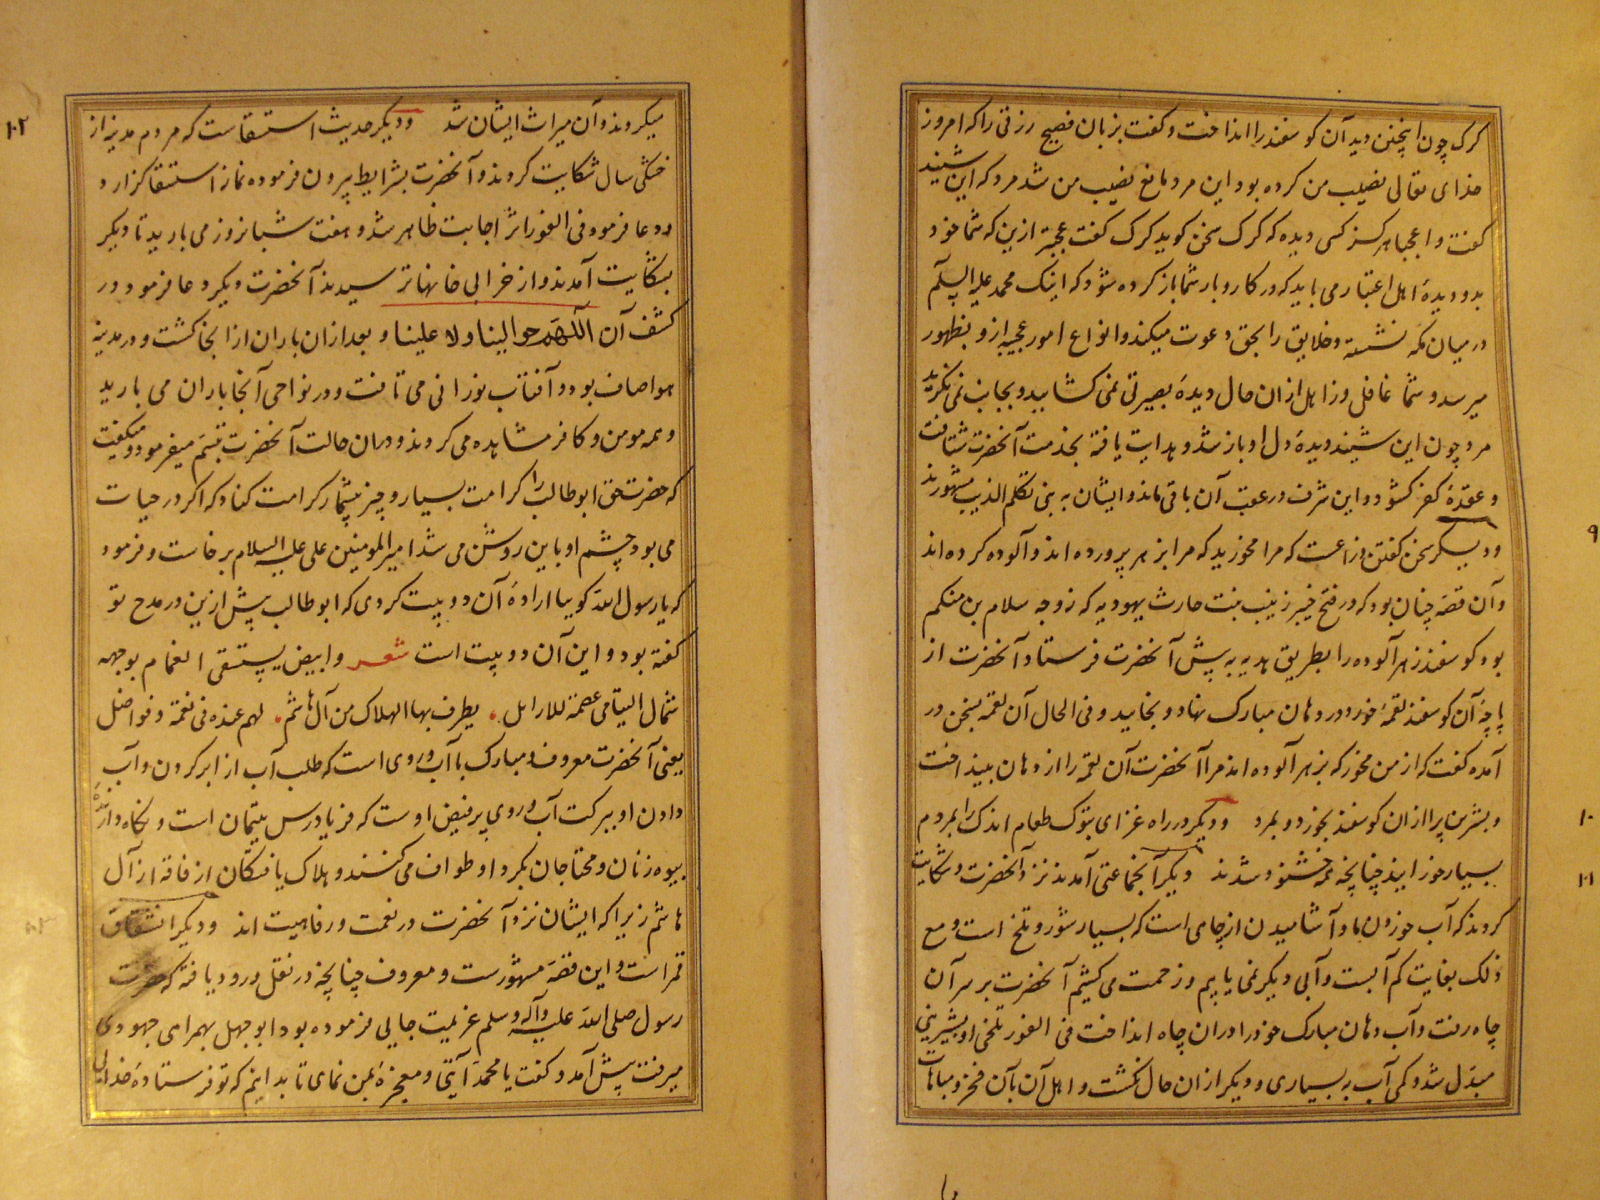 کرک چون اینچنین دید آن کوسفند را انداخت و کفت بزبان فصیح رزقی را که امروز
خدای تعالی نصیب من کرده بود این مرد مانع نصیب من شد مرد که این شنید
کفت واعجبا هرکز کسی دیده که کرک سخن کوید کرک کفت عجبتر ازین که شما خود
بدو دیدهٔ اهل اعتبار می باید که در کار و بار شما باز کرده شود که اینک محمد علیه السلم
در میان مکه نشسته و خلایق را بحق دعوت میکند و انواع امور عجیبه ازو بظهور
میرسد و شما غافل و زاهل ازان حال دیدهٔ بصیرتی نمی کشایید و بجانب نمی نکرید
مرد چون این شنید دیدهٔ دل او باز شد و هدایت یافته بخدمت آنحضرت شتافت
و عقدهٔ کفر کشود و این شرف در عقب آن باقی ماند و ایشان به بنی تکلم الذیب مشهورند
و دیکر سخن کفتن ذراعست که مرا مخورید که مرا بزهر پرورده اند و آلوده کرده اند
و آن قصه چنان بود که در فتح خیبر زینب بنت حارث یهودیه که زوجه سلام بن مشکم
بود کوسفند زهر آلوده را بطریق هدیه به پیش آنحضرت فرستاد آنحضرت از
پاچهٔ آن کوسفند لقمهٔ خورد در دهان مبارک نهاد و بخایید و فی الحال آن لقمه بسخن در
آمده کفت که از من مخور که بزهر آلوده اند مرا آنحضرت آن لقمه را از دهان بینداخت
و بشر بن برا ازان کوسفند بخورد و بمرد و دیکر در راه غزای تبوک طعام اندک را بمردم
بسیار خورانید چنانچه همه خشنود شدند دیکر آنجماعتی آمدند نزد آنحضرت و شکایت
کردند که آب خوردن ما و آشامیدن از چاهی است که بسیار شور و تلخ است و مع
ذلک بغایت کم آبست و آبی دیکر نمی یابیم و زحمت می کشیم آنحضرت بر سر آن
چاه رفت و آب دهان مبارک خود را دران چاه انداخت فی الفور تلخی او بشیرینی
مبدل شد و کمی آب به بسیاری و دیکر ازان حال نکشت و اهل آن بآن فخر و مباهات
۹
۱۰
۱۰۱
میکردند و آن میراث ایشان شد و دیکر حدیث استسقاست که مردم مدینه از
خشکی سال شکایت کردند و آنحضرت بشرایط بیرون فرموده نماز استسقا کزارد
و دعا فرمود فی الفور اثر اجابت ظاهر شد و هفت شبانروز می بارید تا دیکر
بشکایت آمدند و از خرابی خانها ترسیدند آنحضرت دیکر دعا فرمود در
کشف آن اللهم حوالینا ولا علینا و بعد ازان باران از انجا کشت و در مدینه
هوا صاف بود و آفتاب نورانی می تافت و در نواحی آنجا باران می بارید
و همه مومن و کافر مشاهده می کردند و دران حالت آنحضرت تبسم میفرمود و میکفت
که حضرت حق ابوطالب را کرامت بسیار و چیز بیشمار کرامت کناد که اکر در حیات
می بود چشم او باین روشن می شد امیرالمومنین علی علیه السلام برخاست و فرمود
که یا رسول الله کویا ارادهٔ آن دو بیت کردی که ابوطالب پیش ازین در مدح تو
کفته بود و این آن دو بیت است شعر وابیض یستسقی الغمام بوجهه
ثمال الیتامی عصمة للارامل یطرف بها الهلاک من آل هاشم لهم عنده فی نعمة و فواضل
یعنی آنحضرت معروف و مبارک با آب و روی است که طلب آب از ابر کردن و آب
دادن او ببرکت آب و روی پر فیض اوست که فریادرس یتیمان است و نکاه دارنده
بیوه زنان و محتاجان بکرد او طواف می کنند و هلاک یافتکان از فاقه از آل
هاشم زیرا که ایشان نزد آنحضرت در نعمت و رفاهیت اند و دیکر انشقاق
قمر است و این قصه مشهورست و معروف چنانچه در نقل ورود یافته که حضرت
رسول صلی الله علیه وآله وسلم عزیمت جایی فرموده بود ابوجهل بهمراهی جهودی
میرفت پیش آمد و کفت یا محمد آیتی و معجزهٔ بمن نمای تا بدانیم که تو فرستادهٔ خدایی
۱۰۲